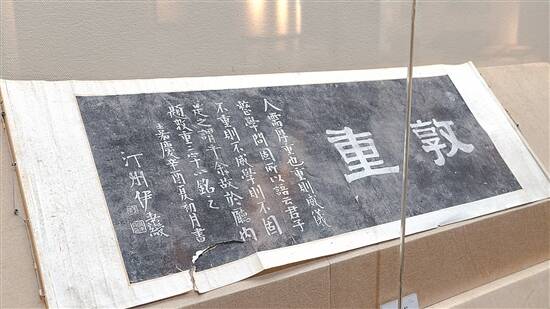 敦重
人需厚重也重則威儀
學問固所以語云君子
不重則不威學則不固
是之謂乎余故於廳內
題敦重二字以銘之
嘉慶辛酉夏初月書
汀州伊秉綬